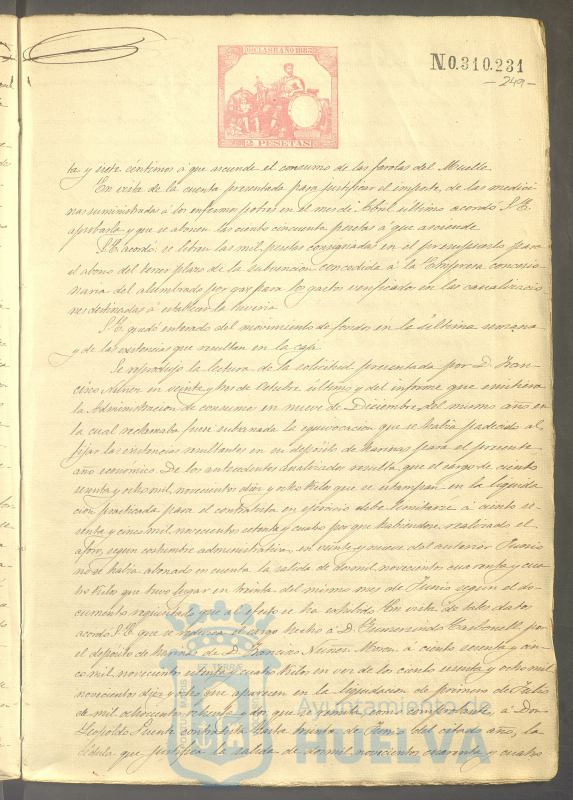 10ª CLASE AÑO 1883
N.0.310.231
- 249 -
2 PESETAS
ta y siete céntimos á que asciende el consumo de las farolas del Muelle.
En vista de la cuenta presentada para justificar el importe, de las medici-
nas suministradas á los enfermos pobres en el mes de Abril último acordó S.E.
aprobarla y que se abonen las ciento cincuenta pesetas á que asciende
S.E. acordó, se libren las mil pesetas consignadas en el presupuesto para
el abono del tercer plazo de la subvencion concedida á la Empresa concesio-
naria del alumbrado por gas para los gastos verificados en las canalizacio
nes destinadas á establecer la
S.E. quedó enterado del movimiento de fondos en la última semana
y de las existencias que resultan en la caja
Se reprodujo la lectura de la solicitud presentada por D. Fran-
cisco Nuñez en veinte y tres de Octubre último y del informe que emitiera
la Administracion de consumos en nueve de Diciembre del mismo año en
la cual reclamaba fuese subsanada la equivocacion que se habia padecido al
fijar las existencias resultantes en su depósito de harinas para el presente
año economico. De los antecedentes resulta, que el cargo de ciento
sesenta y ocho mil, novecientos diez y ocho kilos que se estampan en la liquida
cion practicada para el contratista en ejercicio debe limitarse á ciento se-
senta y cinco mil novecientos setenta y cuatro por que habiendose realizado el
aforo, segun costumbre administrativa, en veinte y nueve del anterior Junio
no se habia abonado en cuenta la salida de dos mil novecientos cuarenta y cua-
tro kilos que tuvo lugar en treinta del mismo mes de Junio segun el do-
cumento requisitado que al efecto se ha exhibido. En vista de tales datos
acordó S.E. que se reduzca el cargo hecho á D. Gumersindo Carbonell por
el depósito de harinas de D. Francisco Nuñez á ciento sesenta y cin-
co mil, novecientos setenta y cuatro kilos en vez de los ciento sesenta y ocho mil
novecientos diez y ocho que aparecen en la liquidacion de primero de Julio
de mil ochocientos ochenta y dos que se remita como comprobante á Don
Leopoldo contratista hasta treinta de Junio del citado año, la
cédula que justifica la salida de dos mil novecientos cuarenta y cuatro
Ayuntamiento de
HUELVA